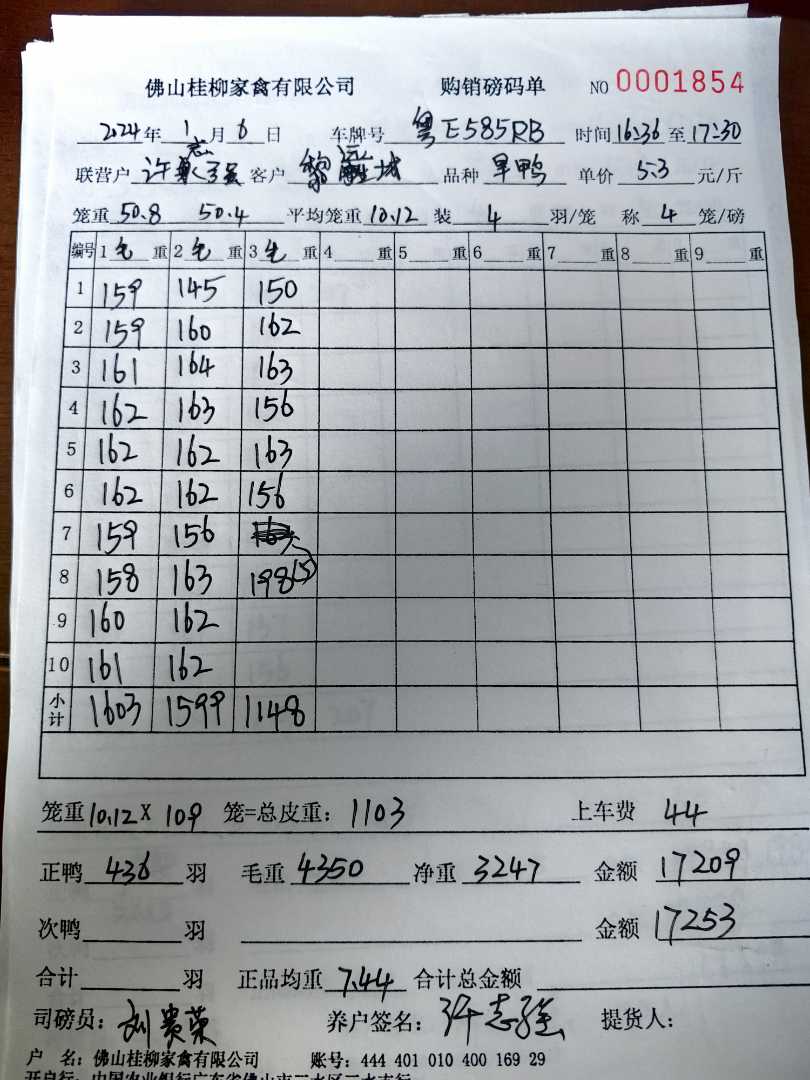 佛山桂柳家禽有限公司 购销磅码单 NO 0001854
2024年 1月 6日 车牌号 粤E585RB 时间16:36至17:30
联营户 许志强 客户 黎 城 品种 旱鸭 单价 5.3 元/斤
笼重 50.8 50.4 平均笼重 10.12 装 4 羽/笼 称 4 笼/磅
编号 1 毛 重 2 毛 重 3 毛 重 4 重 5 重 6 重 7 重 8 重 9 重
1 159 145 150
2 159 160 162
3 161 164 163
4 162 163 156
5 162 162 163
6 162 162 156
7 159 156
8 158 163 198(5)
9 160 162
10 161 162
小计 1603 1599 1148
笼重 10.12 X 109 笼=总皮重: 1103 上车费 44
正鸭 436 羽 毛重 4350 净重 3247 金额 17209
次鸭 羽 金额 17253
合计 羽 正品均重 7.44 合计总金额
司磅员: 刘贵荣 养户签名: 许志强 提货人:
户 名: 佛山桂柳家禽有限公司 账号: 444 401 010 400 169 29
开户行: 中国农业银行广东省佛山市三水区三水支行